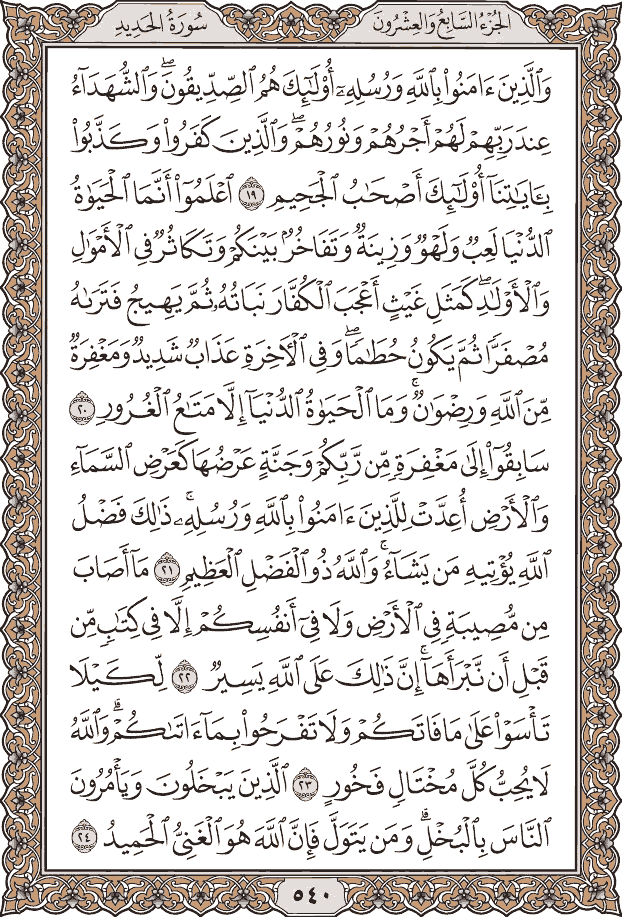 الجُزْءُ السَّابِعُ وَالعِشْرُونَ
سُورَةُ الحَدِيدِ
وَٱلَّذِينَ ءَامَنُوا۟ بِٱللَّهِ وَرُسُلِهِۦٓ أُو۟لَـٰٓئِكَ هُمُ ٱلصِّدِّيقُونَ ۖ وَٱلشُّهَدَآءُ
عِندَ رَبِّهِمْ لَهُمْ أَجْرُهُمْ وَنُورُهُمْ ۖ وَٱلَّذِينَ كَفَرُوا۟ وَكَذَّبُوا۟
بِـَٔايَـٰتِنَآ أُو۟لَـٰٓئِكَ أَصْحَـٰبُ ٱلْجَحِيمِ ١٩ ٱعْلَمُوٓا۟ أَنَّمَا ٱلْحَيَوٰةُ
ٱلدُّنْيَا لَعِبٌ وَلَهْوٌ وَزِينَةٌ وَتَفَاخُرٌۢ بَيْنَكُمْ وَتَكَاثُرٌ فِى ٱلْأَمْوَٰلِ
وَٱلْأَوْلَـٰدِ ۖ كَمَثَلِ غَيْثٍ أَعْجَبَ ٱلْكُفَّارَ نَبَاتُهُۥ ثُمَّ يَهِيجُ فَتَرَىٰهُ
مُصْفَرًّا ثُمَّ يَكُونُ حُطَـٰمًا ۖ وَفِى ٱلْـَٔاخِرَةِ عَذَابٌ شَدِيدٌ وَمَغْفِرَةٌ
مِّنَ ٱللَّهِ وَرِضْوَٰنٌ ۚ وَمَا ٱلْحَيَوٰةُ ٱلدُّنْيَآ إِلَّا مَتَـٰعُ ٱلْغُرُورِ ٢٠
سَابِقُوٓا۟ إِلَىٰ مَغْفِرَةٍ مِّن رَّبِّكُمْ وَجَنَّةٍ عَرْضُهَا كَعَرْضِ ٱلسَّمَآءِ
وَٱلْأَرْضِ أُعِدَّتْ لِلَّذِينَ ءَامَنُوا۟ بِٱللَّهِ وَرُسُلِهِۦ ۚ ذَٰلِكَ فَضْلُ
ٱللَّهِ يُؤْتِيهِ مَن يَشَآءُ ۚ وَٱللَّهُ ذُو ٱلْفَضْلِ ٱلْعَظِيمِ ٢١ مَآ أَصَابَ
مِن مُّصِيبَةٍ فِى ٱلْأَرْضِ وَلَا فِىٓ أَنفُسِكُمْ إِلَّا فِى كِتَـٰبٍ مِّن
قَبْلِ أَن نَّبْرَأَهَآ ۚ إِنَّ ذَٰلِكَ عَلَى ٱللَّهِ يَسِيرٌ ٢٢ لِّكَيْلَا
تَأْسَوْا۟ عَلَىٰ مَا فَاتَكُمْ وَلَا تَفْرَحُوا۟ بِمَآ ءَاتَىٰكُمْ ۗ وَٱللَّهُ
لَا يُحِبُّ كُلَّ مُخْتَالٍ فَخُورٍ ٢٣ ٱلَّذِينَ يَبْخَلُونَ وَيَأْمُرُونَ
ٱلنَّاسَ بِٱلْبُخْلِ ۗ وَمَن يَتَوَلَّ فَإِنَّ ٱللَّهَ هُوَ ٱلْغَنِىُّ ٱلْحَمِيدُ ٢٤
٥٤٠